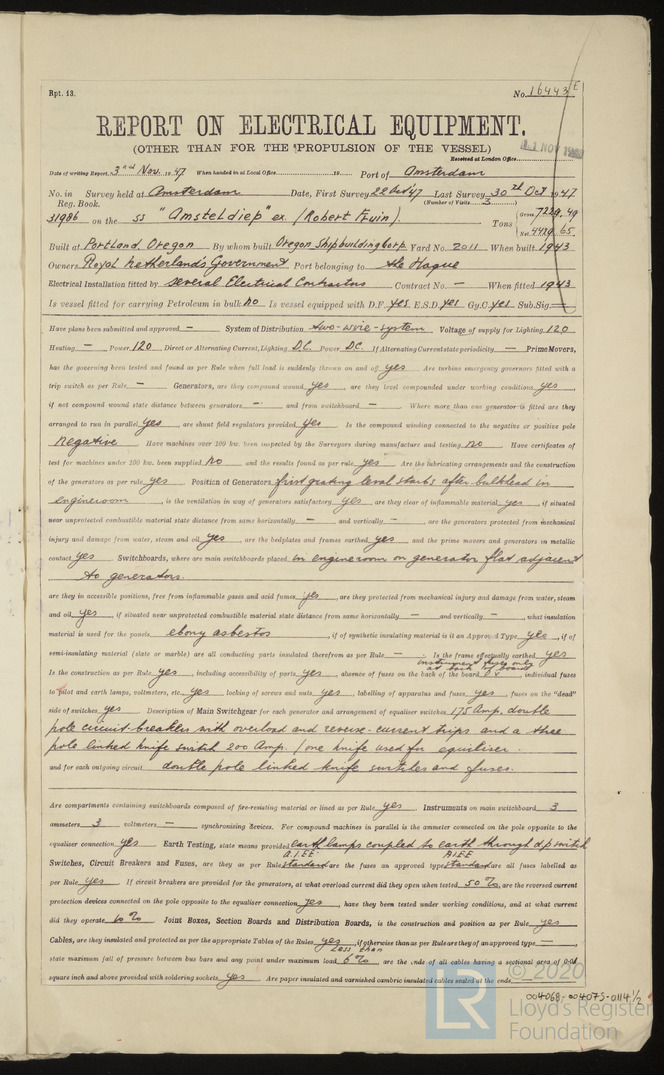 Rpt. 13.
No. 16443 E
REPORT ON ELECTRICAL EQUIPMENT.
(OTHER THAN FOR THE PROPULSION OF THE VESSEL)
Received at London Office
Date of writing Report 3rd Nov. 1947 When handed in at Local Office 19 Port of Amsterdam
No. in Survey held at Amsterdam Date, First Survey 22 Oct '47 Last Survey 30th Oct 1947
Reg. Book. (Number of Visits 3)
31986 on the SS "Amsteldiep" ex (Robert Ewin) Tons Gross 7229.49
Net 4429.65
Built at Portland, Oregon By whom built Oregon Shipbuilding Corp. Yard No. 2011 When built 1943
Owners Royal Netherland's Government Port belonging to the Hague
Electrical Installation fitted by several Electrical Contractors Contract No. — When fitted 1943
Is vessel fitted for carrying Petroleum in bulk no Is vessel equipped with D.F. yes E.S.D. yes Gy.C. yes Sub.Sig. —
Have plans been submitted and approved — System of Distribution two-wire-system Voltage of supply for Lighting 120
Heating — Power 120 Direct or Alternating Current, Lighting D.C. Power D.C. If Alternating Current state periodicity — Prime Movers,
has the governing been tested and found as per Rule when full load is suddenly thrown on and off yes Are turbine emergency governors fitted with a
trip switch as per Rule — Generators, are they compound wound yes, are they level compounded under working conditions yes,
if not compound wound state distance between generators — and from switchboard — Where more than one generator is fitted are they
arranged to run in parallel yes, are shunt field regulators provided yes Is the compound winding connected to the negative or positive pole
negative Have machines over 100 kw. been inspected by the Surveyors during manufacture and testing no Have certificates of
test for machines under 100 kw. been supplied no and the results found as per rule yes Are the lubricating arrangements and the construction
of the generators as per rule yes Position of Generators first grating level starb. after bulkhead in
engineroom, is the ventilation in way of generators satisfactory yes are they clear of inflammable material yes, if situated
near unprotected combustible material state distance from same horizontally — and vertically —, are the generators protected from mechanical
injury and damage from water, steam and oil yes, are the bedplates and frames earthed yes and the prime movers and generators in metallic
contact yes Switchboards, where are main switchboards placed in engineroom on generator flat adjacent
to generators.
are they in accessible positions, free from inflammable gases and acid fumes yes, are they protected from mechanical injury and damage from water, steam
and oil yes, if situated near unprotected combustible material state distance from same horizontally — and vertically —, what insulation
material is used for the panels ebony asbestos, if of synthetic insulating material is it an Approved Type yes, if of
semi-insulating material (slate or marble) are all conducting parts insulated therefrom as per Rule — Is the frame effectually earthed yes
instrument fuses only at back of board
Is the construction as per Rule yes, including accessibility of parts yes, absence of fuses on the back of the board, individual fuses
to pilot and earth lamps, voltmeters, etc. yes locking of screws and nuts yes, labelling of apparatus and fuses yes, fuses on the "dead"
side of switches yes Description of Main Switchgear for each generator and arrangement of equaliser switches 175 Amp. double
pole circuit-breakers with overload and reverse-current trips and a three
pole linked knife switch 200 Amp. / one knife used for equiliser.
and for each outgoing circuit double pole linked knife switches and fuses.
Are compartments containing switchboards composed of fire-resisting material or lined as per Rule yes Instruments on main switchboard 3
ammeters 3 voltmeters — synchronising devices. For compound machines in parallel is the ammeter connected on the pole opposite to the
equaliser connection yes Earth Testing, state means provided earth lamps coupled to earth through d.p. switch
A.I.E.E. A.I.E.E.
Switches, Circuit Breakers and Fuses, are they as per Rule standard are the fuses an approved type standard are all fuses labelled as
per Rule yes If circuit breakers are provided for the generators, at what overload current did they open when tested 50%, are the reversed current
protection devices connected on the pole opposite to the equaliser connection yes, have they been tested under working conditions, and at what current
did they operate 10% Joint Boxes, Section Boards and Distribution Boards, is the construction and position as per Rule yes
Cables, are they insulated and protected as per the appropriate Tables of the Rules yes, if otherwise than as per Rule are they of an approved type —,
less than
state maximum fall of pressure between bus bars and any point under maximum load 6% are the ends of all cables having a sectional area of 0.01
square inch and above provided with soldering sockets yes Are paper insulated and varnished cambric insulated cables sealed at the ends
© 2020
LR
Lloyd's Register
Foundation
004068-004075-0114 1/2